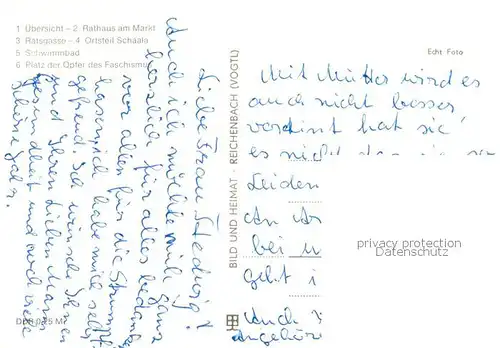 1 Übersicht – 2 Rathaus am Markt
3 Ratsgasse – 4 Ortsteil Schaala
5 Schwimmbad
6 Platz der Opfer des Faschismu
Echt Foto
BILD UND HEIMAT · REICHENBACH (VOGTL)
Liebe Frau Hedwig!
Auch ich möchte mich ganz
herzlich für alles bedanken
vor allen für die Strumpf
hosen, ich habe mich sehr
gefreud. Ich wünsche Ihnen
und Ihren lieben Mann
gesundheit und noch viele
schöne Jahre.
Mit Mutter wird es
auch nicht besser
verdint hat sie
es nicht
Leiden
An Ar
bei u
geht i
Auch
angehöre
DDR 0,25 M
privacy protection
Datenschutz